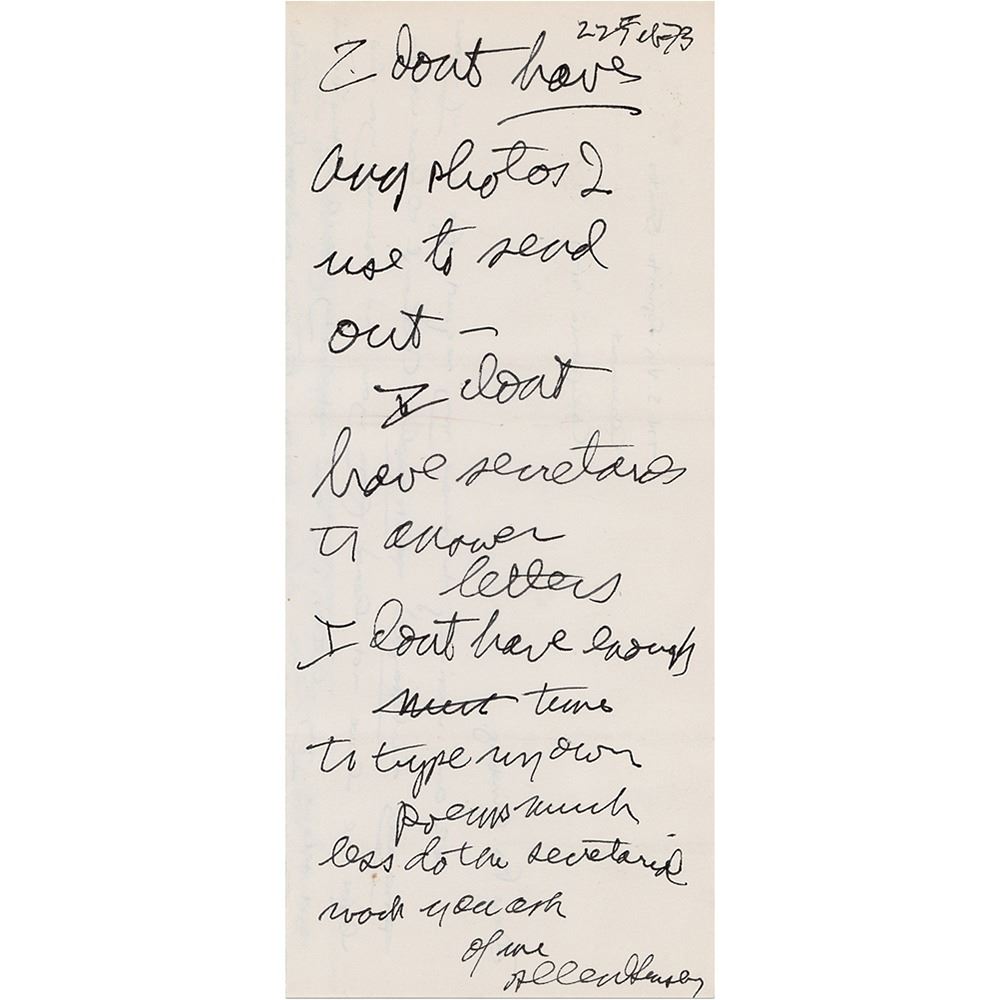 22 Feb 73
I dont have
any photos I
use to send
out —
I dont
have secretarys
to answer
letters
I dont have enough
time
to type my own
poems much
less do the secretarial
work you ask
of me
Allen Ginsberg